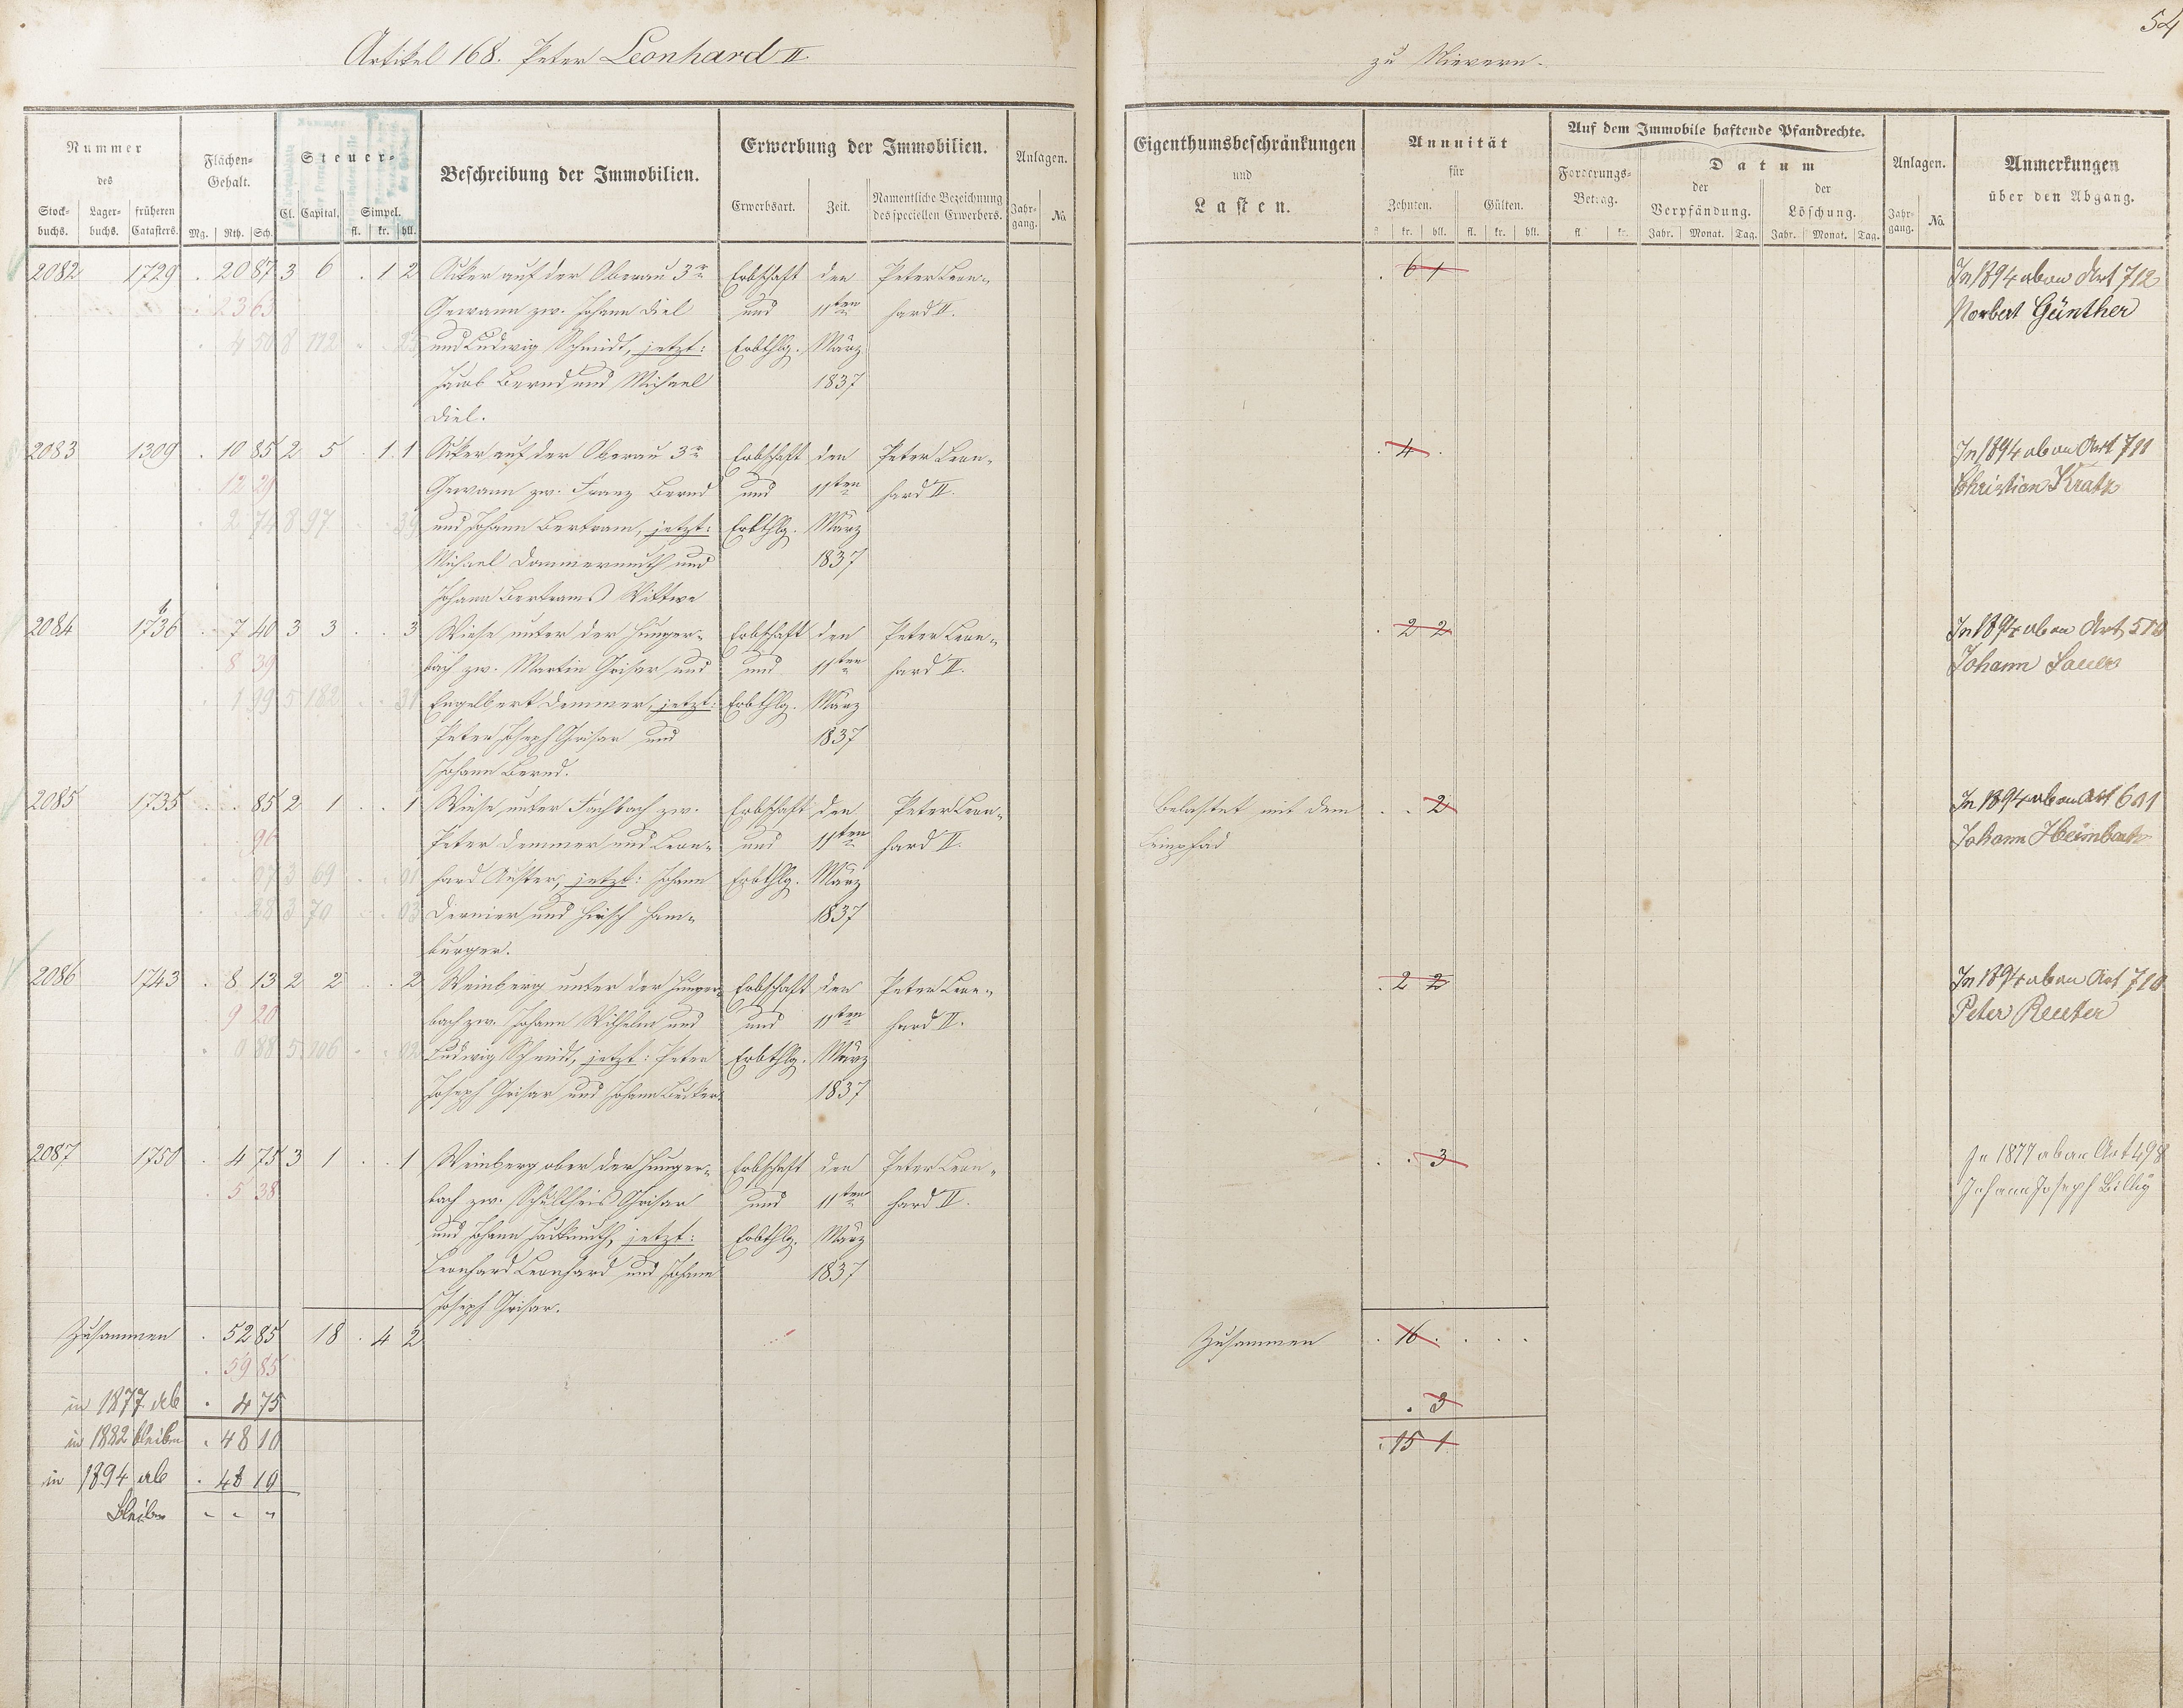 54
Artikel 168. Peter Leonhard II.
zu Nievern.
Nummer
des
Stock-
buchs.
Lager-
buchs.
früheren
Catasters.
Flächen-
Gehalt.
Mg. Rth. Sch.
Steuer-
Cl. Capital. Simpel.
fl. kr. hll.
Beschreibung der Immobilien.
Erwerbung der Immobilien.
Erwerbsart. Zeit.
Namentliche Bezeichnung
des speciellen Erwerbers.
Anlagen.
Jahr-
gang. No.
Eigenthumsbeschränkungen
und
Lasten.
Annuität
für
Zehnten. Gülten.
fl. kr. hll. fl. kr. hll.
Auf dem Immobile haftende Pfandrechte.
Forderungs-
Betrag.
fl. kr.
Datum
der
Verpfändung.
der
Löschung.
Jahr. Monat. Tag. Jahr. Monat. Tag.
Anlagen.
Jahr-
gang. No.
Anmerkungen
über den Abgang.
2082 1729 . 20 87 3 6 . 1 2 Acker auf der Oberau 3r Erbschaft den Peter Leon- . 6 1 In 1894 ab an Art 712
23 63 Gewann zw. Johann Diel und 11ten hard II. Norbert Günther
4 50 8 172 und Ludwig Schmidt, jetzt: Erbthlg. März
Jacob Bernd und Michael 1837
Diel.
2083 1309 . 10 85 2 5 . 1 . 1 Acker auf der Oberau 3r Erbschaft den Peter Leon- . 4 . In 1894 ab an Art 711
12 29 Gewann zw. Franz Bernd und 11ten hard II. Christian Kratz
2 74 8 97 39 und Johann Bertram, jetzt: Erbthlg. März
Michael Dommermuth und 1837
Johann Bertrams Wittwe
2084 1736 . 7 40 3 3 . . 3 Wiese unter der Hunger- Erbschaft den Peter Leon- . 2 2 In 1894 ab an Art
8 39 bach zw. Martin Grisar und und 11ten hard II. Johann Sauer
1 99 5 182 31 Engelbert Demmer, jetzt: Erbthlg. März
Peter Joseph Grisar und 1837
Johann Bernd.
2085 1735 . . 85 2 1 . . 1 Wiese unter Fachbach zw. Erbschaft den Peter Leon- Belastet mit dem . . 2 In 1894 ab an Art 601
96 Peter Demmer und Leon- und 11ten hard II. Leinpfad Johann Heimbach
07 3 69 01 hard Auster, jetzt: Johann Erbthlg. März
28 3 70 03 Dernier und Hirsch Ham- 1837
burger.
2086 1743 . 8 13 2 2 . . 2 Weinberg unter der Hunger- Erbschaft den Peter Leon- . 2 2 In 1894 ab an Art 710
9 20 bach zw. Johann Wilhelm und und 11ten hard II. Peter Reuter
0 88 5 106 Ludwig Schmidt, jetzt: Peter Erbthlg. März
Joseph Grisar und Johann Becker. 1837
2087 1750 . 4 75 3 1 . . 1 Weinberg ober der Hunger- Erbschaft den Peter Leon- . . 3 In 1877 ab an Art 498
5 38 bach zw. Schultheis Grisar und 11ten hard II. Johann Joseph Billig
und Johann jetzt: Erbthlg. März
Leonhard Leonhard und Johann 1837
Joseph Grisar.
Zusammen . 52 85 18 . 4 2 Zusammen . 16 . . . .
. 59 85
in 1877 ab . 4 75 . 3
in 1882 bleiben . 48 10 . 15 1
in 1894 ab . 48 10
Bleiben - - -